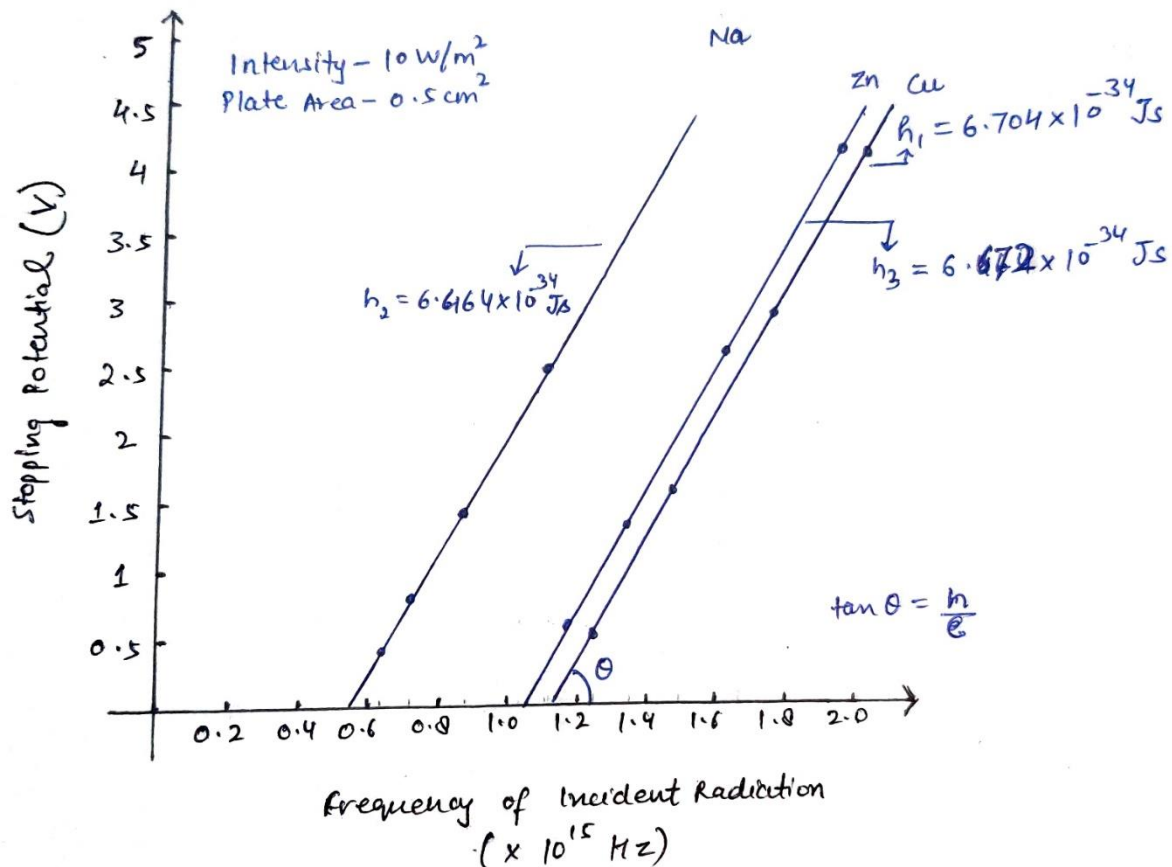 Intensity - 10 W/m²
Plate Area - 0.5 cm²
Na
Zn
Cu
h₁ = 6.704 × 10⁻³⁴ Js
h₃ = 6.672 × 10⁻³⁴ Js
h₂ = 6.6164 × 10⁻³⁴ Js
Stopping Potential (V)
5
4.5
4
3.5
3
2.5
2
1.5
1
0.5
θ
tan θ = h/e
0.2 0.4 0.6 0.8 1.0 1.2 1.4 1.6 1.8 2.0
Frequency of Incident Radiation
(× 10¹⁵ Hz)